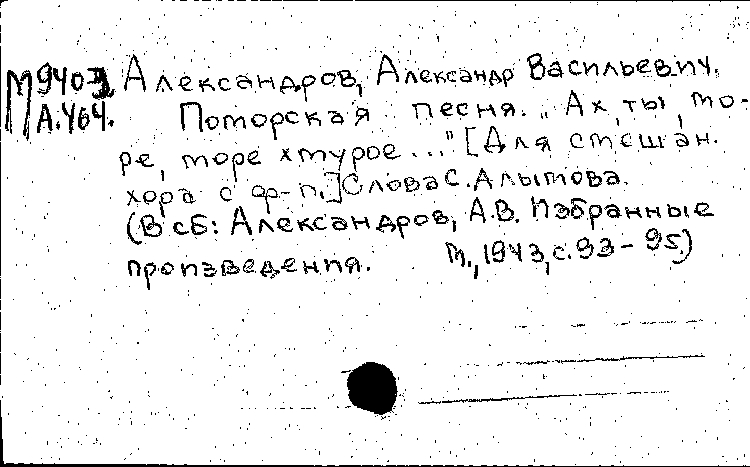 М940З Александров, Александр Васильевич.
А.464. Поморская песня. "Ах, ты, мо-
ре, море хмурое..." [Для смешан.
хора с ф-п.] Слова С. Алымова.
(В сб: Александров, А.В. Избранные
произведения. М., 1943, с. 93-95.)